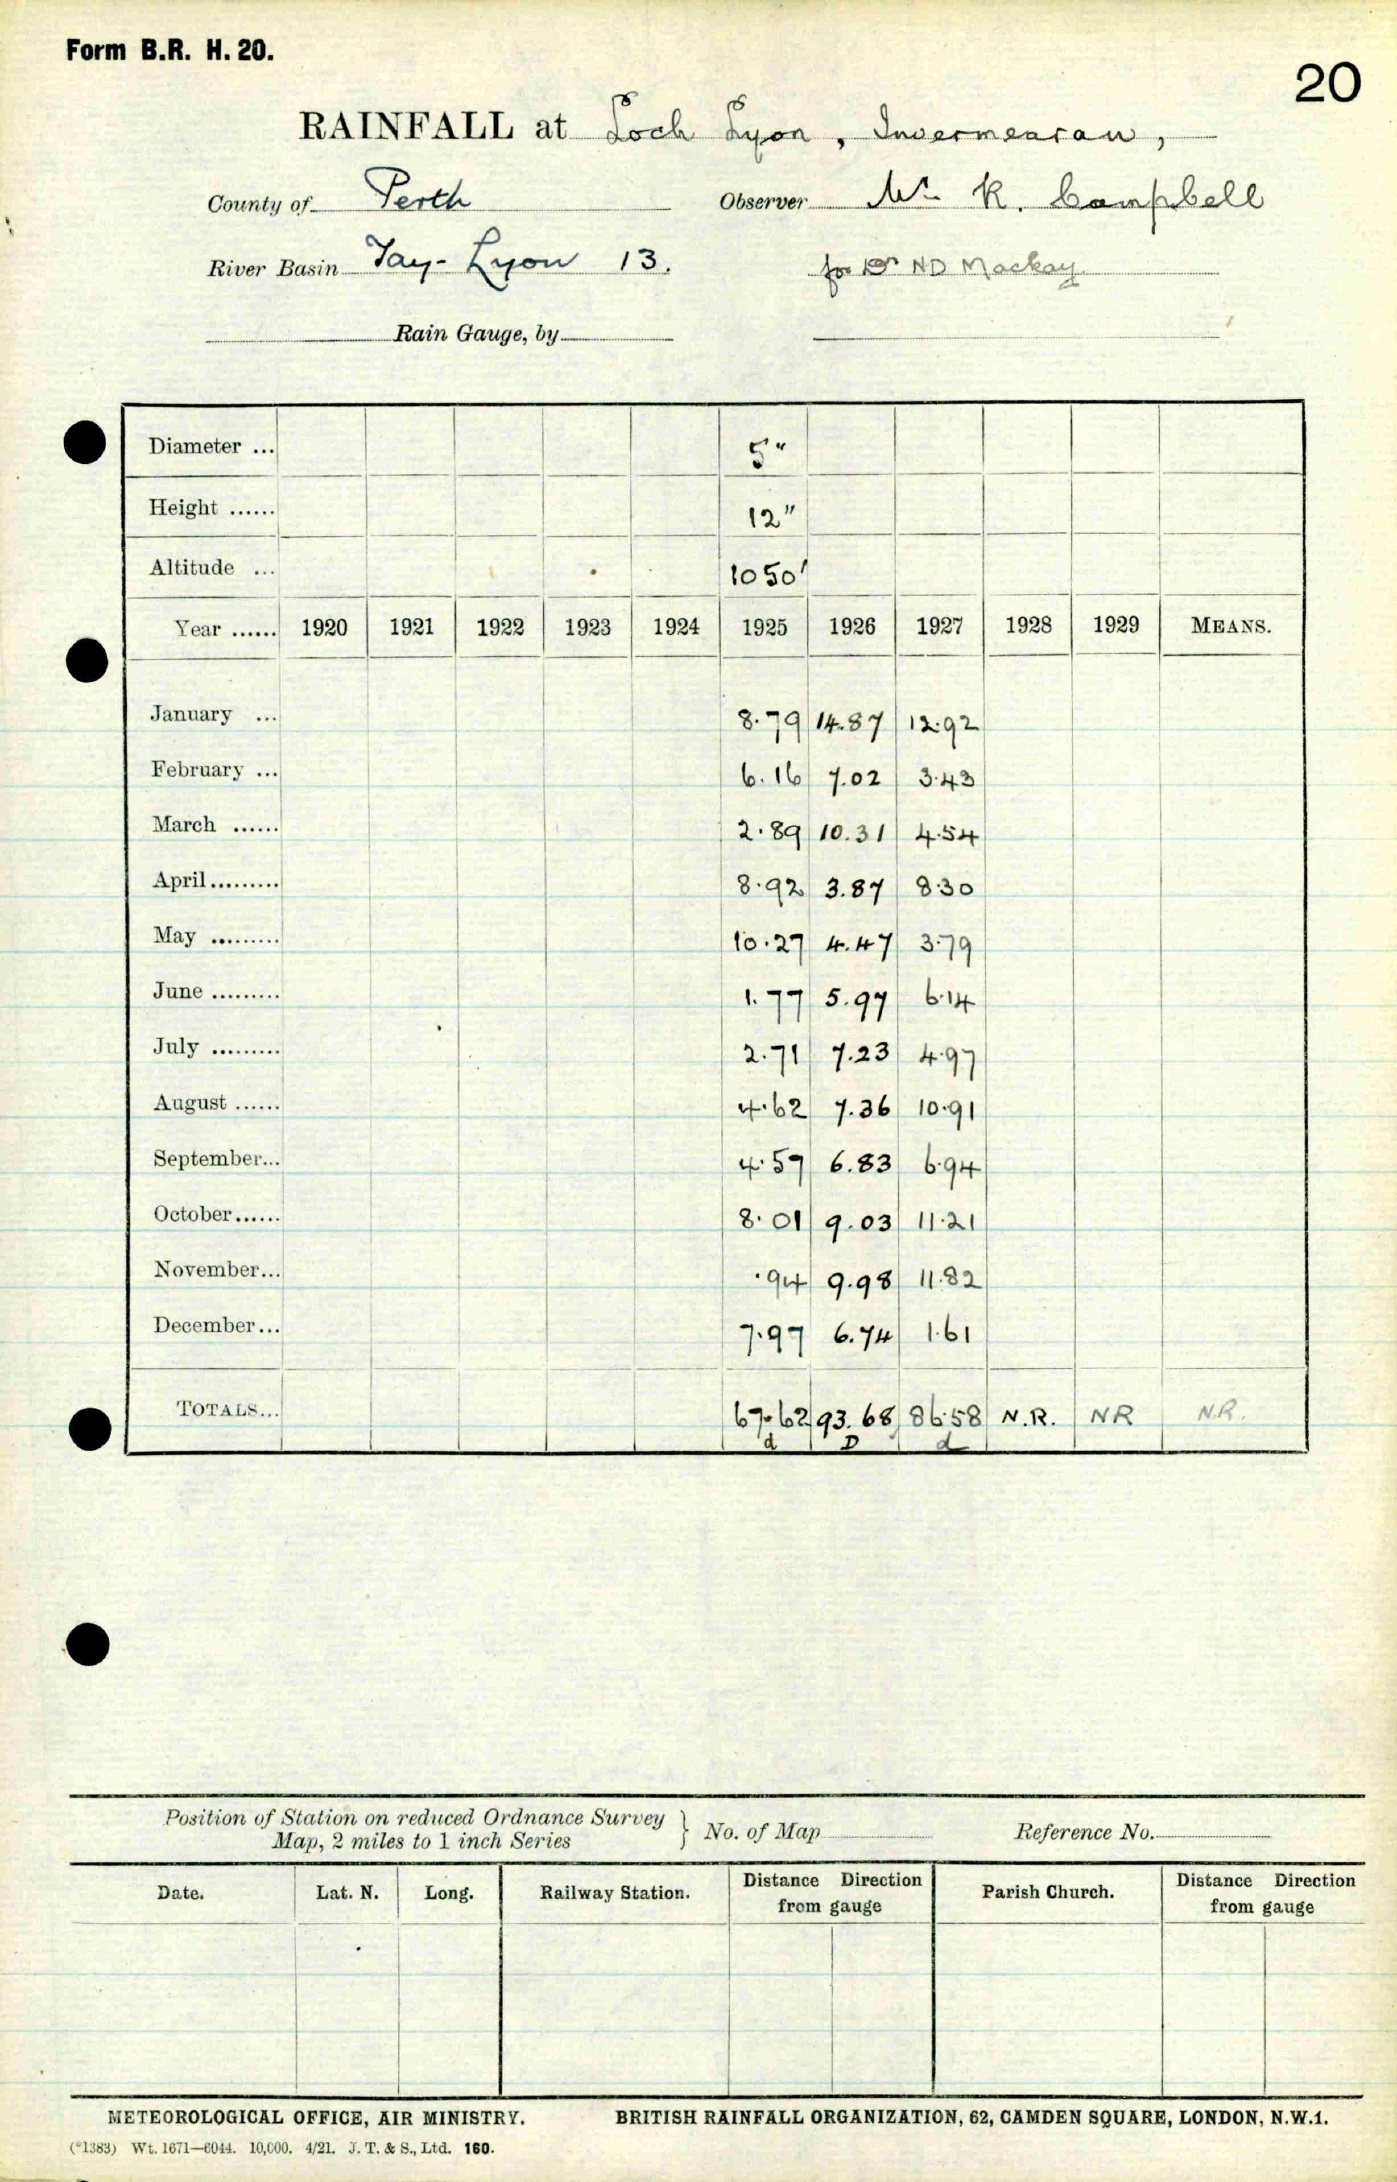 Form B.R. H. 20.
20
RAINFALL at Loch Lyon, Invermearan,
County of Perth Observer Mr. R. Campbell
River Basin Tay-Lyon 13. for Dr ND Mackay
Rain Gauge, by
Diameter ... 5"
Height ...... 12"
Altitude ... 1050'
Year ...... 1920 1921 1922 1923 1924 1925 1926 1927 1928 1929 MEANS.
January ... 8.79 14.87 12.92
February ... 6.16 7.02 3.43
March ...... 2.89 10.31 4.54
April......... 8.92 3.87 8.30
May ......... 10.27 4.47 3.79
June ......... 1.77 5.97 6.14
July ......... 2.71 7.23 4.97
August ...... 4.62 7.36 10.91
September... 4.57 6.83 6.94
October...... 8.01 9.03 11.21
November... .94 9.98 11.82
December... 7.97 6.74 1.61
TOTALS... 67.62 93.68 86.58 N.R. NR N.R.
d D d
Position of Station on reduced Ordnance Survey
Map, 2 miles to 1 inch Series } No. of Map Reference No.
Date. Lat. N. Long. Railway Station. Distance Direction from gauge Parish Church. Distance Direction from gauge
METEOROLOGICAL OFFICE, AIR MINISTRY. BRITISH RAINFALL ORGANIZATION, 62, CAMDEN SQUARE, LONDON, N.W.1.
(*1383) Wt. 1671—6044. 10,000. 4/21. J. T. & S., Ltd. 160.